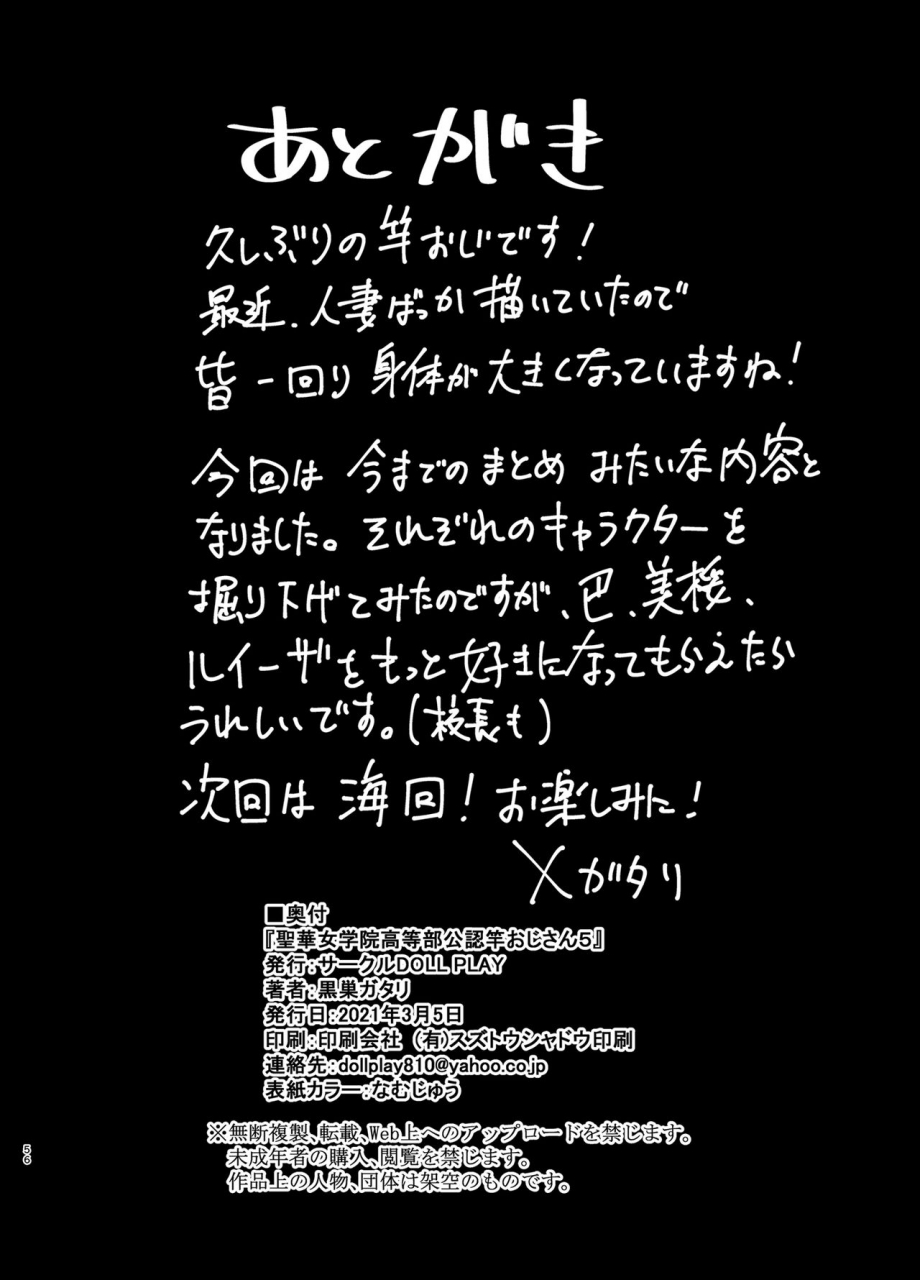 あとがき
久しぶりの竿おじです!
最近、人妻ばっか描いていたので
皆一回り身体が大きくなっていますね!
今回は今までのまとめみたいな内容と
なりました。それぞれのキャラクターを
掘り下げてみたのですが、巴、美桜、
ルイーザをもっと好きになってもらえたら
うれしいです。(校長も)
次回は海回!お楽しみに!
メガタリ
■奥付
『聖華女学院高等部公認竿おじさん5』
発行:サークルDOLL PLAY
著者:黒巣ガタリ
発行日:2021年3月5日
印刷:印刷会社 (有)スズトウシャドウ印刷
連絡先:dollplay810@yahoo.co.jp
表紙カラー:なむじゅう
※無断複製、転載、Web上へのアップロードを禁じます。
未成年者の購入、閲覧を禁じます。
作品上の人物、団体は架空のものです。
56